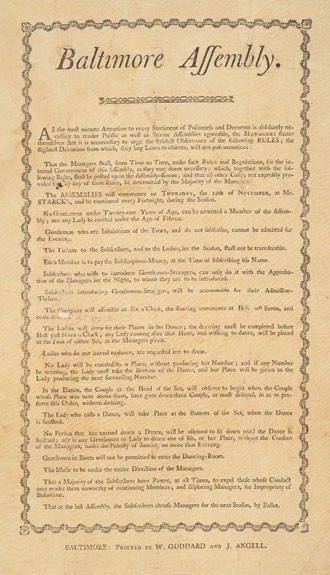 Baltimore Assembly.
AS the most minute Attention to every Sentiment of Politeness and Decorum is absolutely ne-
cessary to render Public as well as Private Assemblies agreeable, the MANAGERS flatter
themselves that it is unnecessary to urge the strictest Observance of the following RULES; the
slightest Deviation from which, they beg Leave to observe, will not pass unnoticed:
That the Managers shall, from Time to Time, make such Rules and Regulations, for the in-
ternal Government of this Assembly, as they may deem necessary; which, together with the fol-
lowing Rules, shall be posted up in the Assembly-Room; and that all other Cases, not expressly pro-
vided by any of these Rules, be determined by the Majority of the Managers.
The ASSEMBLIES will commence on THURSDAY, the 12th of NOVEMBER, at Mr.
STARCK's, and be continued every Fortnight, during the Season.
No Gentleman under Twenty-one Years of Age, can be admitted a Member of the Assem-
bly; nor any Lady be invited under the Age of Fifteen.
Gentlemen who are Inhabitants of the Town, and do not subscribe, cannot be admitted for
the Evening.
The Tickets to the Subscribers, and to the Ladies, for the Season, shall not be transferable.
Each Member is to pay the Subscription-Money, at the Time of subscribing his Name.
Subscribers who wish to introduce Gentlemen-Strangers, can only do it with the Approba-
tion of the Managers for the Night, to whom they are to be introduced.
Subscribers introducing Gentlemen-Strangers, will be accountable for their Admission-
Tickets.
The Company will assemble at Six o'Clock, the drawing commence at Half past Seven, and
The Ladies will draw for their Places in the Dance; the drawing must be completed before
Half past Seven o'Clock; any Lady coming after that Hour, and wishing to dance, will be placed
at the Foot of either Set, as the Managers please.
Ladies who do not intend to dance, are requested not to draw.
No Lady will be entitled to a Place, without producing her Number; and if any Number
be wanting, the Lady must take the Bottom of the Dance, and her Place will be given to the
Lady producing the next succeeding Number.
In the Dance, the Couple at the Head of the Set, will observe to begin when the Couple
whose Place was next above them, have gone down three Couple, or must desist, so as to pre-
serve this Order, without dancing.
The Lady who calls a Dance, will take Place at the Bottom of the Set, when the Dance
is finished.
No Person that has danced down a Dance, will be allowed to sit down until the Dance is
finished; nor is any Gentleman or Lady to dance out of his, or her Place, without the Consent
of the Managers, under the Penalty of dancing no more that Evening.
Gentlemen in Boots will not be permitted to enter the Dancing-Room.
The Music to be under the entire Direction of the Managers.
That a Majority of the Subscribers have Power, at all Times, to expel those whose Conduct
may render them unworthy of continuing Members; and displacing Managers, for Impropriety of
Behaviour.
That at the last Assembly, the Subscribers choose Managers for the next Season, by Ballot.
BALTIMORE: PRINTED BY W. GODDARD AND J. ANGELL.